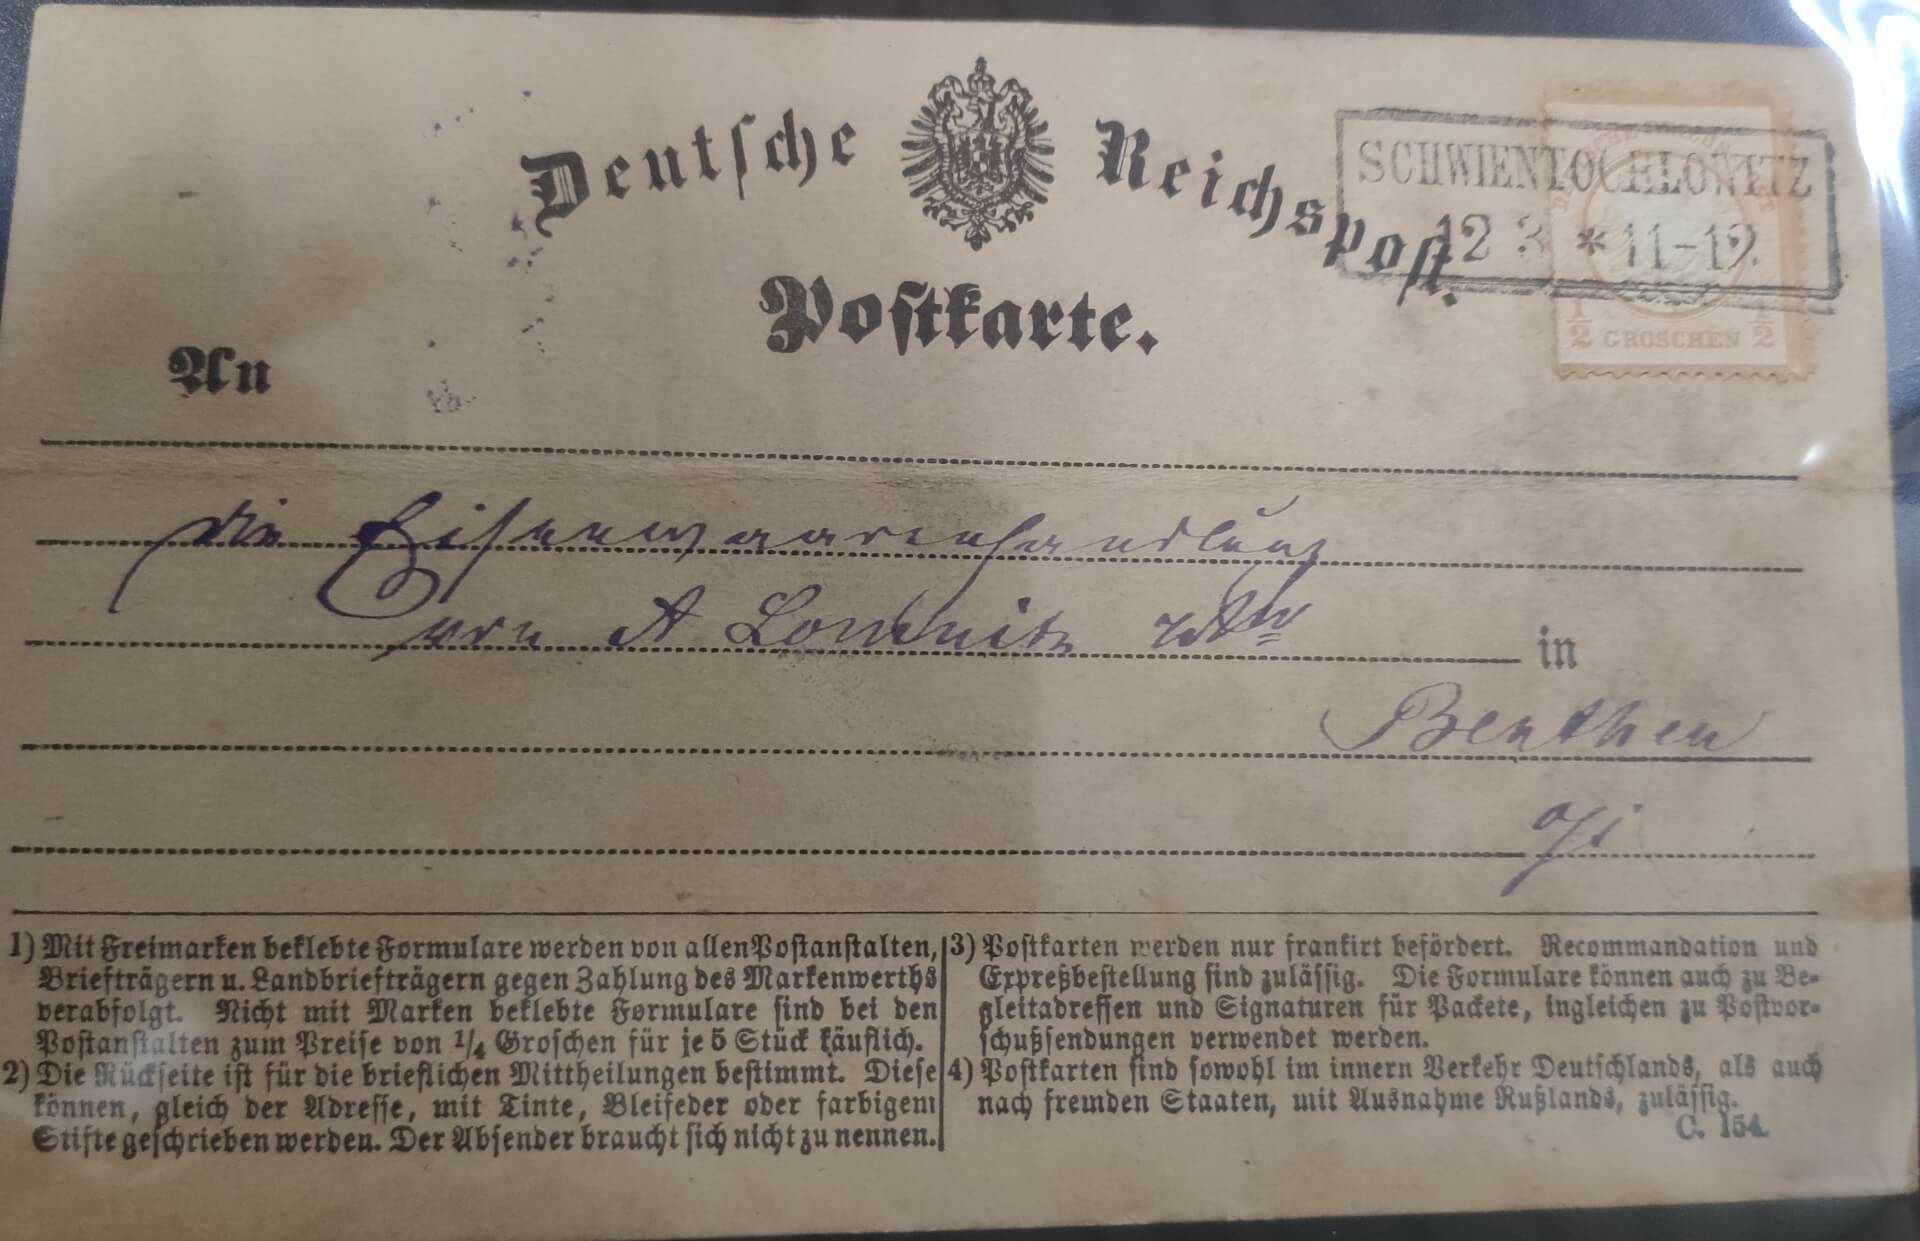 Deutsche Reichspost.
SCHWIENTOCHLOWITZ
12 3 * 11-12
1/2 GROSCHEN 1/2
Postkarte.
An
die Eisenwaarenhandlung
von A Lomnitz
in
Beuthen
o/s
1) Mit Freimarken beklebte Formulare werden von allen Postanstalten,
Briefträgern u. Landbriefträgern gegen Zahlung des Markenwerths
verabfolgt. Nicht mit Marken beklebte Formulare sind bei den
Postanstalten zum Preise von 1/4 Groschen für je 5 Stück käuflich.
2) Die Rückseite ist für die brieflichen Mittheilungen bestimmt. Diese
können, gleich der Adresse, mit Tinte, Bleifeder oder farbigem
Stifte geschrieben werden. Der Absender braucht sich nicht zu nennen.
3) Postkarten werden nur frankirt befördert. Recommandation und
Expreßbestellung sind zulässig. Die Formulare können auch zu Be-
gleitadressen und Signaturen für Packete, ingleichen zu Postvor-
schußsendungen verwendet werden.
4) Postkarten sind sowohl im innern Verkehr Deutschlands, als auch
nach fremden Staaten, mit Ausnahme Rußlands, zulässig.
C. 154.